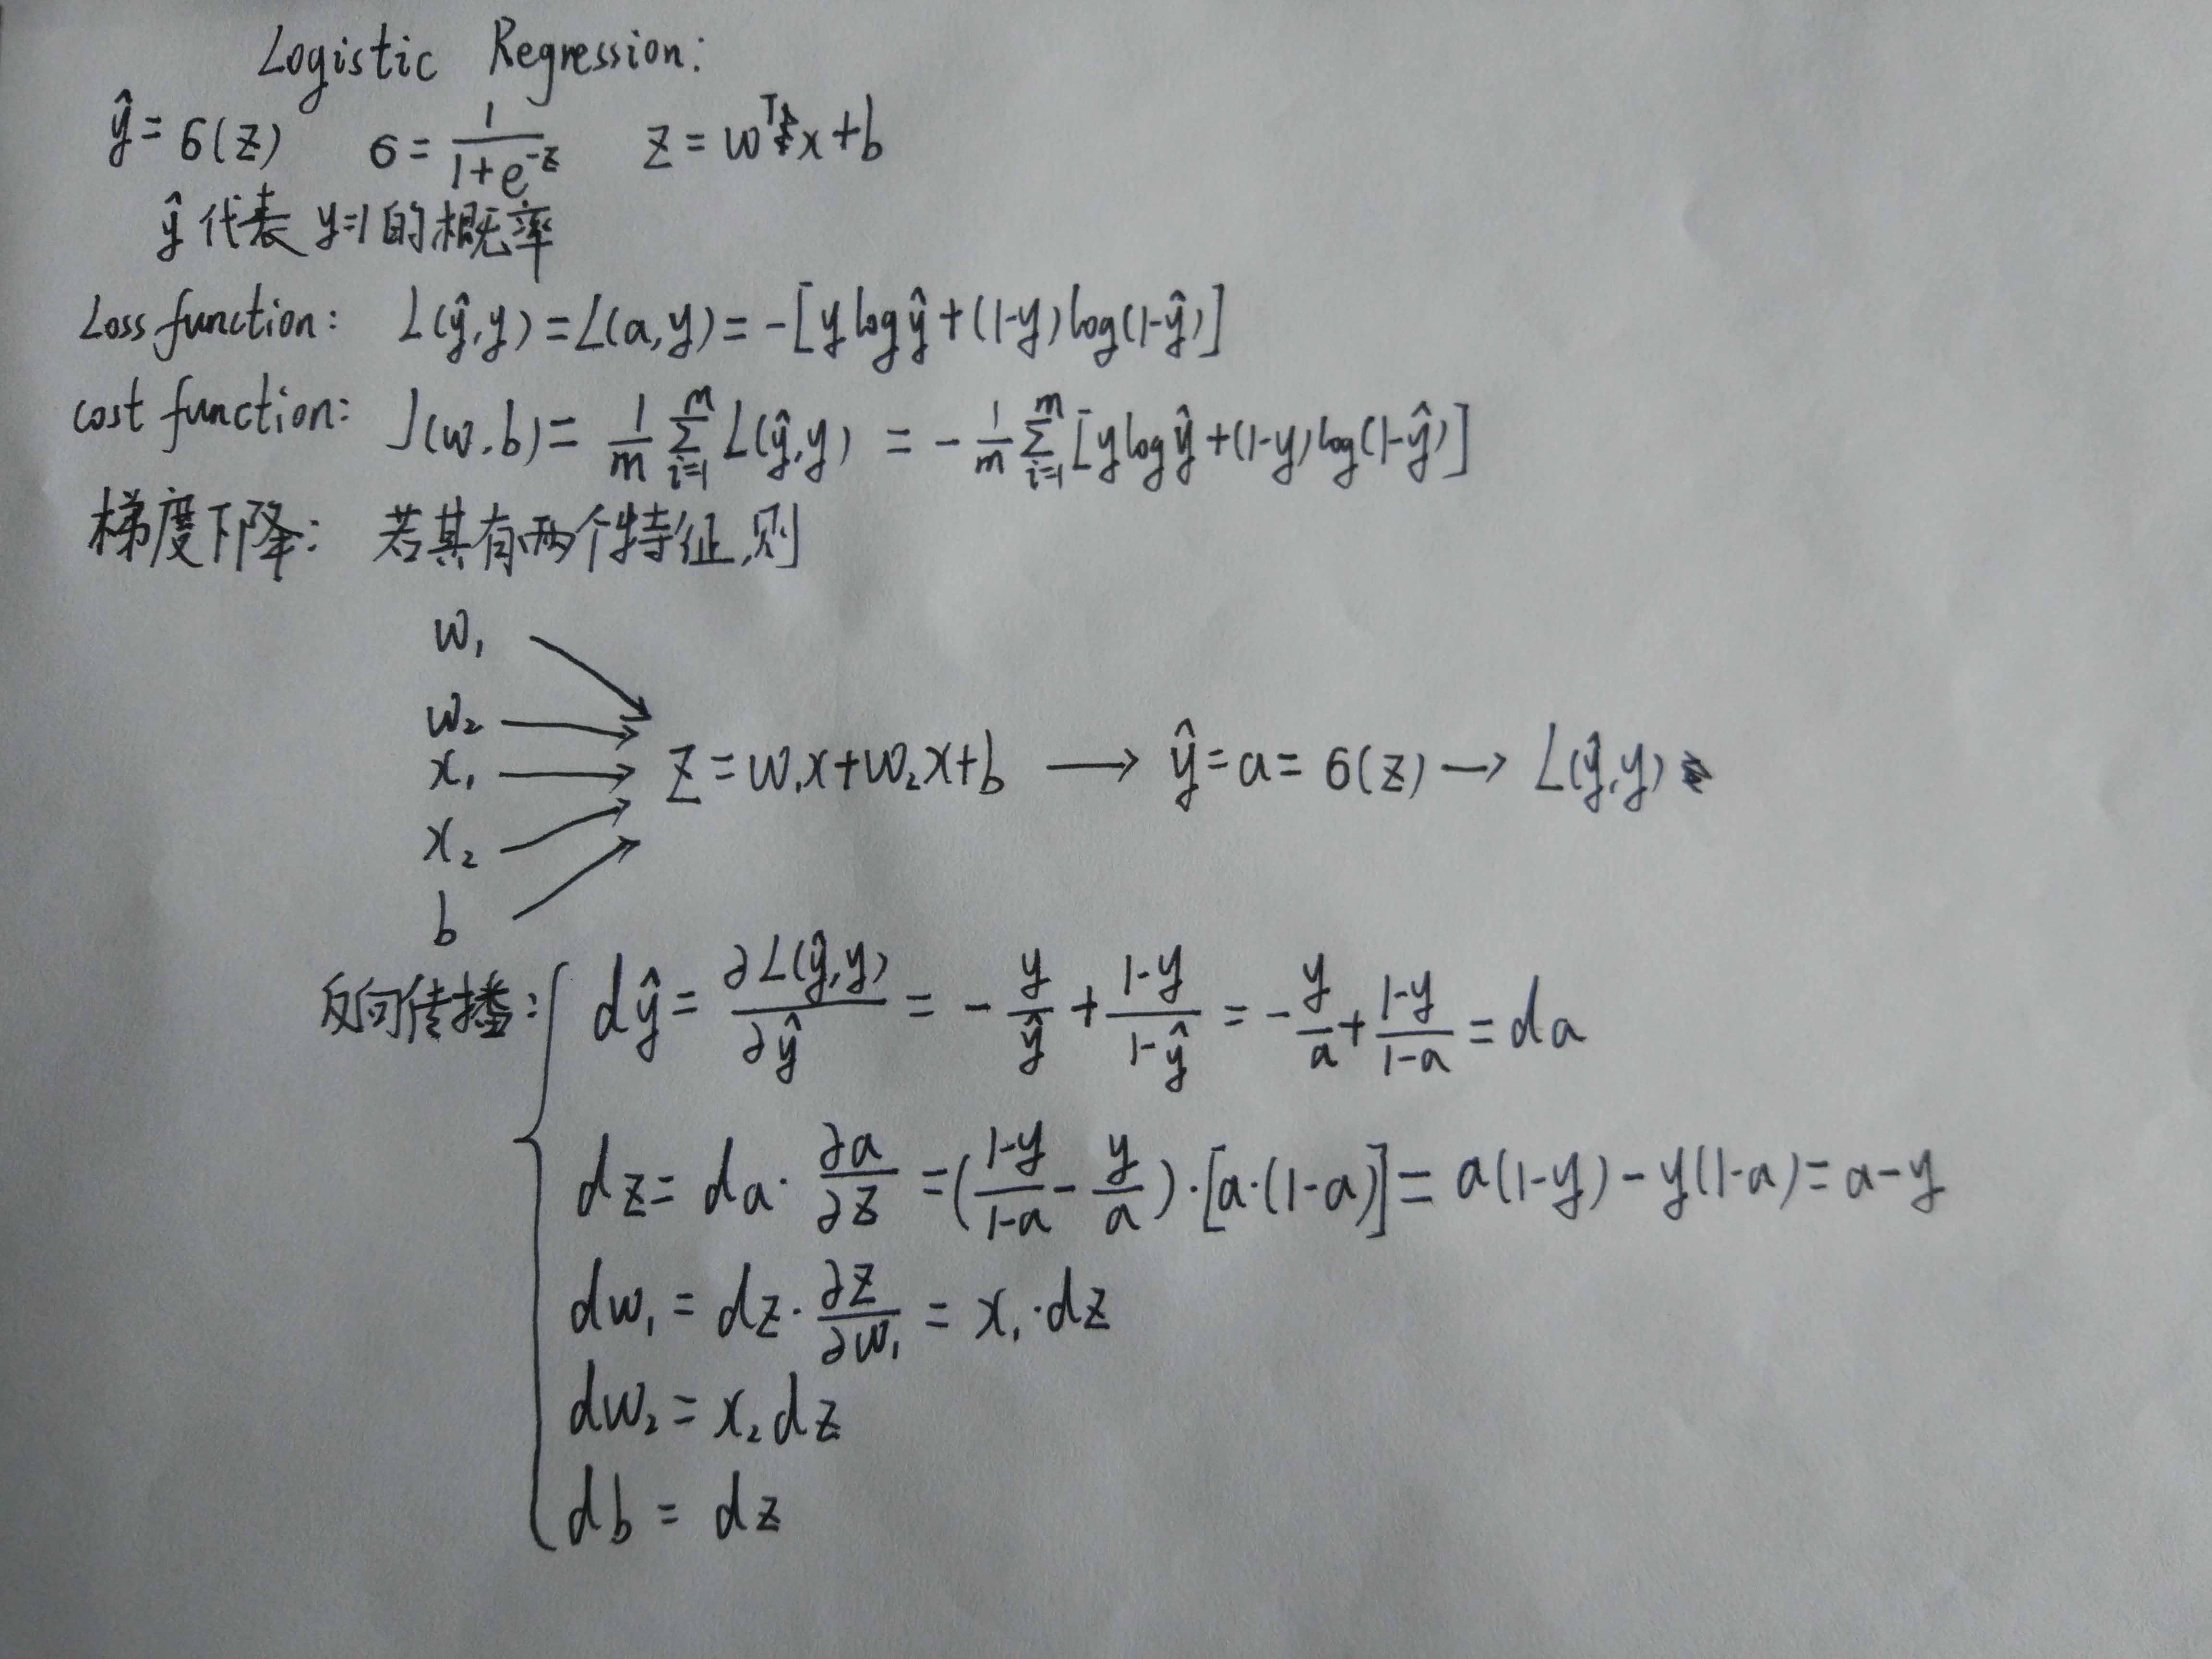 Logistic Regression:
ŷ = σ(z)   σ = 1/(1+e^(-z))   z = w^T x + b
ŷ 代表 y=1 的概率
Loss function: L(ŷ,y) = L(a,y) = -[y log ŷ + (1-y) log(1-ŷ)]
cost function: J(w,b) = 1/m Σ_{i=1}^{m} L(ŷ,y) = -1/m Σ_{i=1}^{m} [y log ŷ + (1-y) log(1-ŷ)]
梯度下降: 若其有两个特征,则
w₁
w₂
x₁
z = w₁x + w₂x + b → ŷ = a = σ(z) → L(ŷ,y)
x₂
b
反向传播: { dŷ = ∂L(ŷ,y)/∂ŷ = -y/ŷ + (1-y)/(1-ŷ) = -y/a + (1-y)/(1-a) = da
dz = da · ∂a/∂z = ((1-y)/(1-a) - y/a) · [a·(1-a)] = a(1-y) - y(1-a) = a-y
dw₁ = dz · ∂z/∂w₁ = x₁ · dz
dw₂ = x₂ dz
db = dz